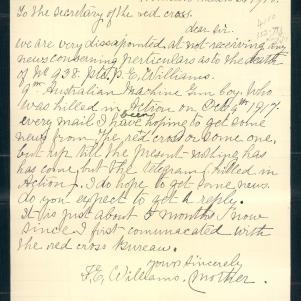 To the secretary of the red cross.
dear sir.
we are very dissapointed at not receiving any
news concerning particulars as to the death
of No 938. Pte P. E. Williams.
9th Australian Machine Gun Coy. Who
was killed in Action on Oct 4th 1917.
every mail I have been hoping to get some
news from the red cross or some one,
but up till the present nothing has
has come, but the telegram (killed in
Action). I do hope to get some news
do you expect to get a reply.
it is just about 5 months now
since I first communacated with
the red cross Bureau.
yours sincerely
F. E. Williams. Mother.